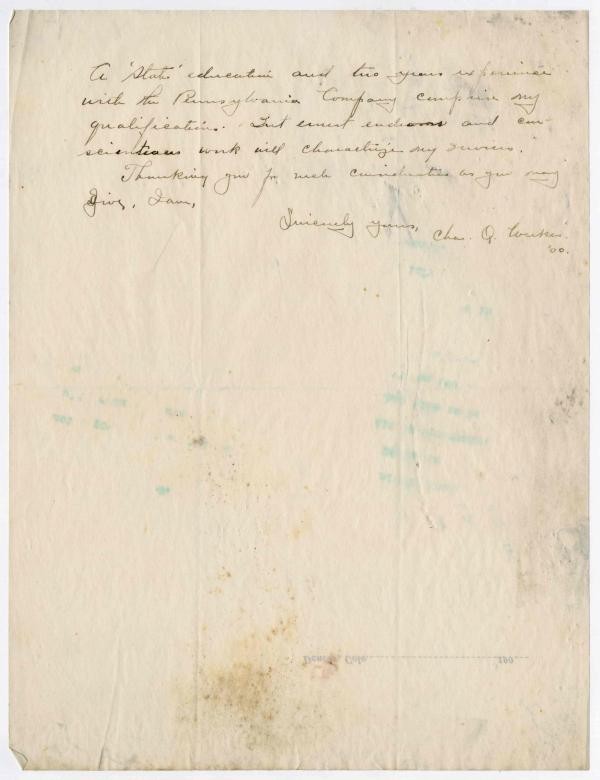 A 'State' education and two years experience
with the Pennsylvania Company comprise my
qualifications. But earnest endeavor and con-
scientious work will characterize my services.
Thanking you for such consideration as you may
give, I am,
Sincerely yours,
Chas. Q.
'00.
Denver, Colo. 190